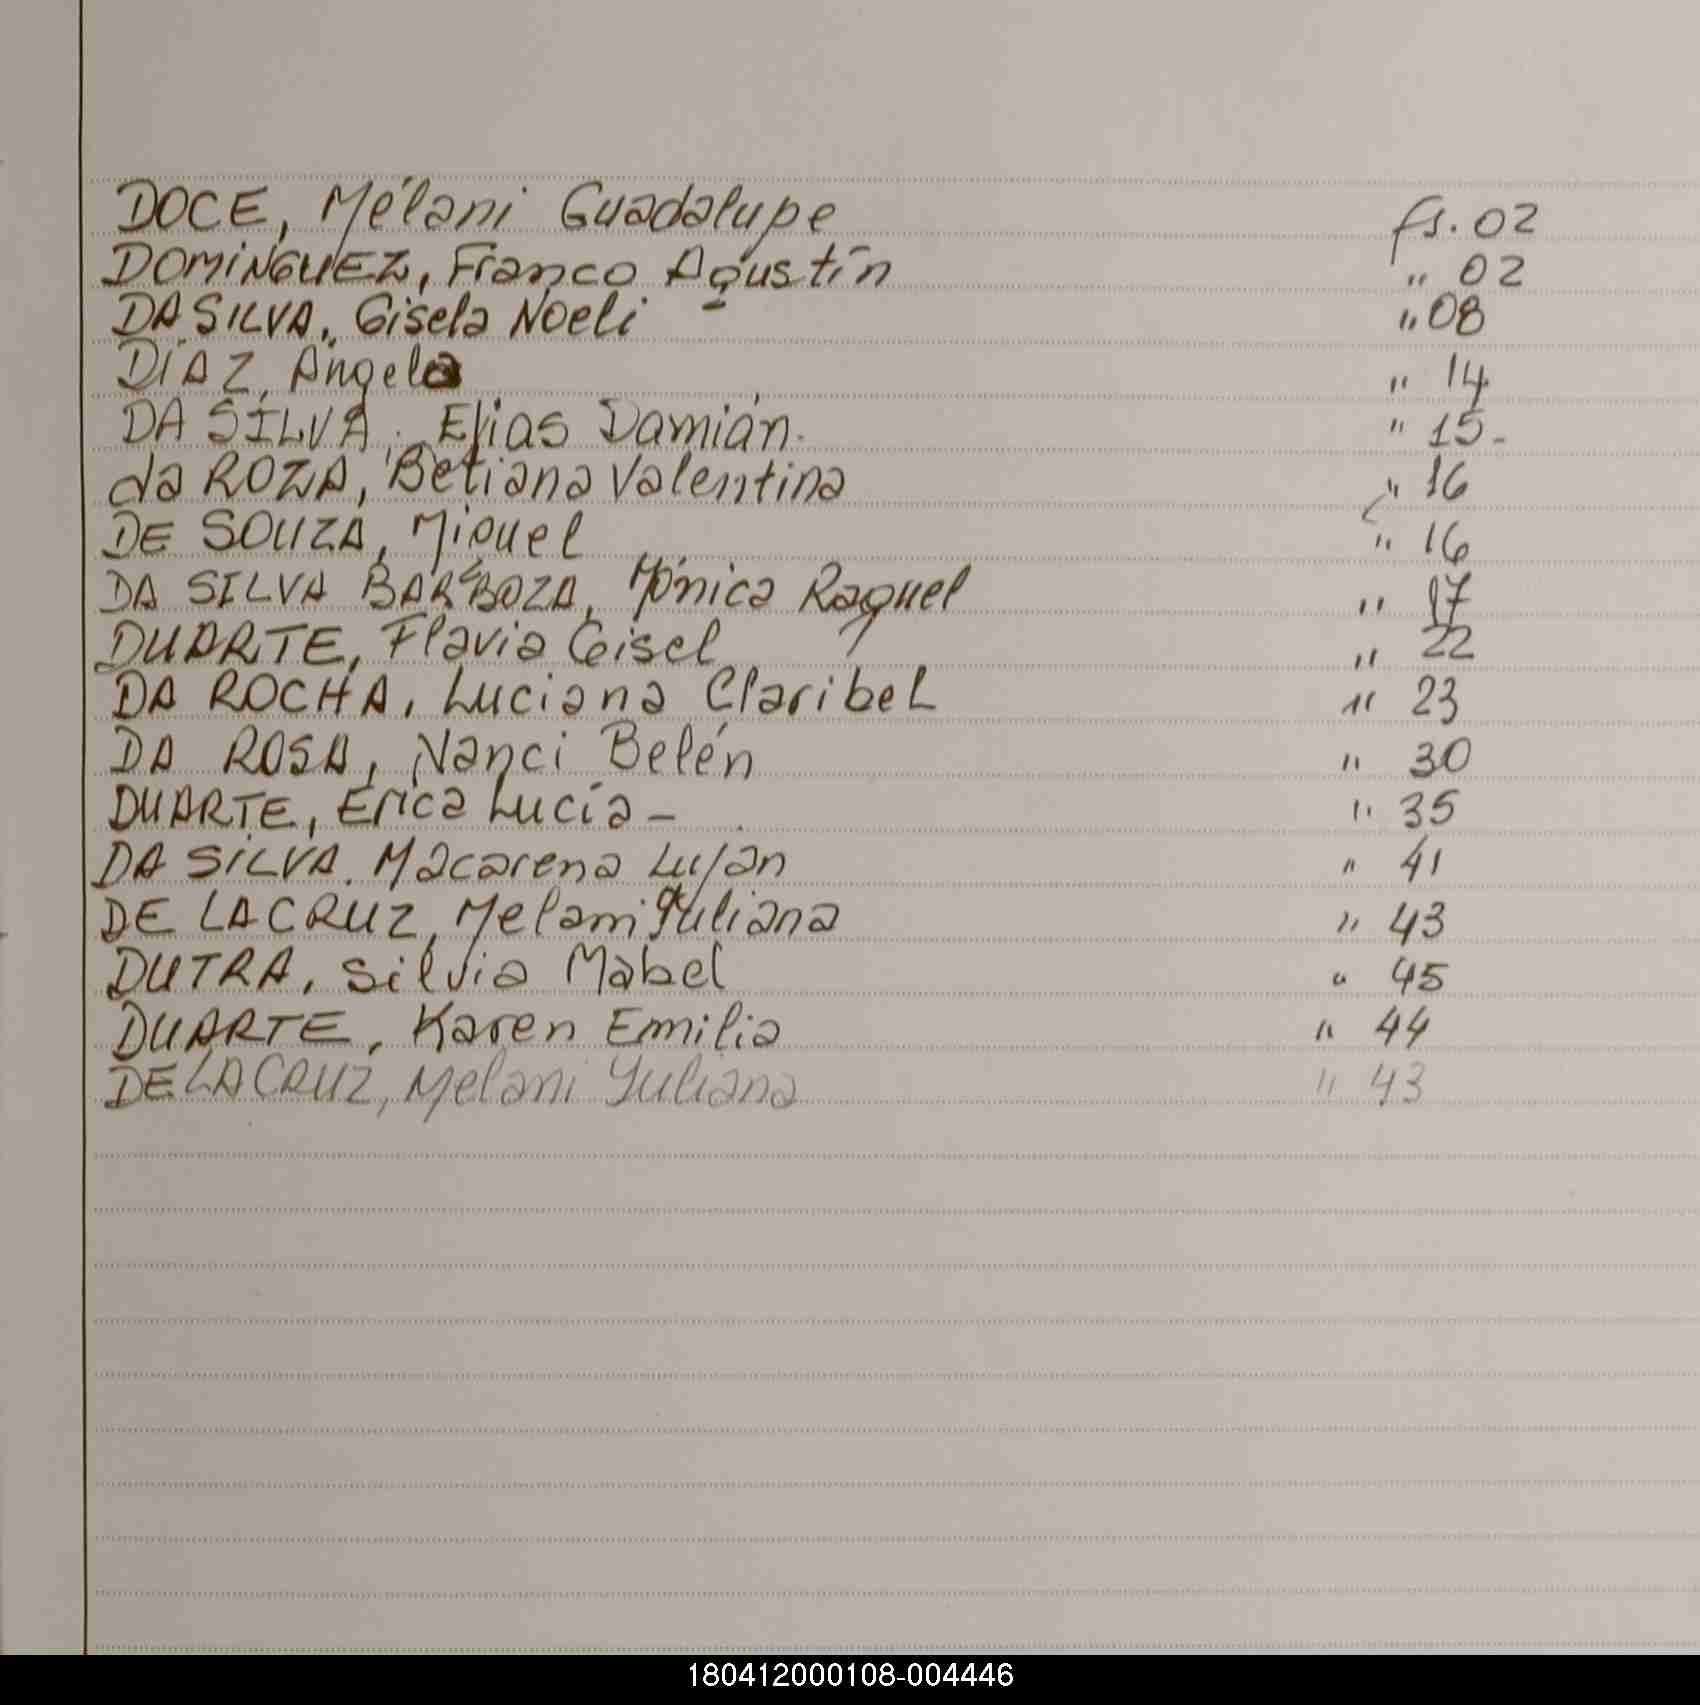 DOCE, Mélani Guadalupe fs. 02
DOMiNGUEZ, Franco Agustín " 02
DA SILVA, Gisela Noeli " 08
DÍAZ, Angela " 14
DA SILVA, Elias Damián. " 15-
da ROZA, Betiana Valentina " 16
DE SOUZA, Miguel " 16
DA SILVA BARBOZA, Mónica Raquel " 17
DUARTE, Flavia Gisel " 22
DA ROCHA, Luciana Claribel " 23
DA ROSA, Nanci Belén " 30
DUARTE, Erica Lucía - " 35
DA SiLVA. Macarena Luján " 41
DE LA CRUZ, Melani Yuliana " 43
DUTRA, Silvia Mabel " 45
DUARTE, Karen Emilia " 44
DE LA CRUZ, Melani Yuliana " 43
180412000108-004446